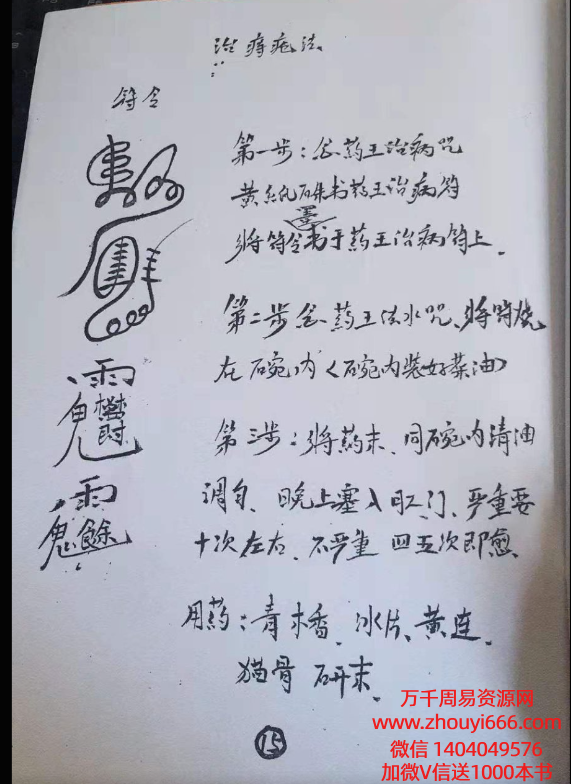 治痔疮法
符令
第一步：念药王治病咒
黄纸硃书药王治病符
将符令书于药王治病符上．
第二步念药王法水咒、将符烧
在碗内〈碗内装好菜油〉
第三步：将药末、同碗内清油
调匀、晚上塞入肛门、严重要
十次左右、不严重四五次即愈、
用药：青木香、冰片、黄连、
猫骨 研末、
15
万千周易资源网
www.zhouyi666.com
微信 1404049576
加微V信送1000本书